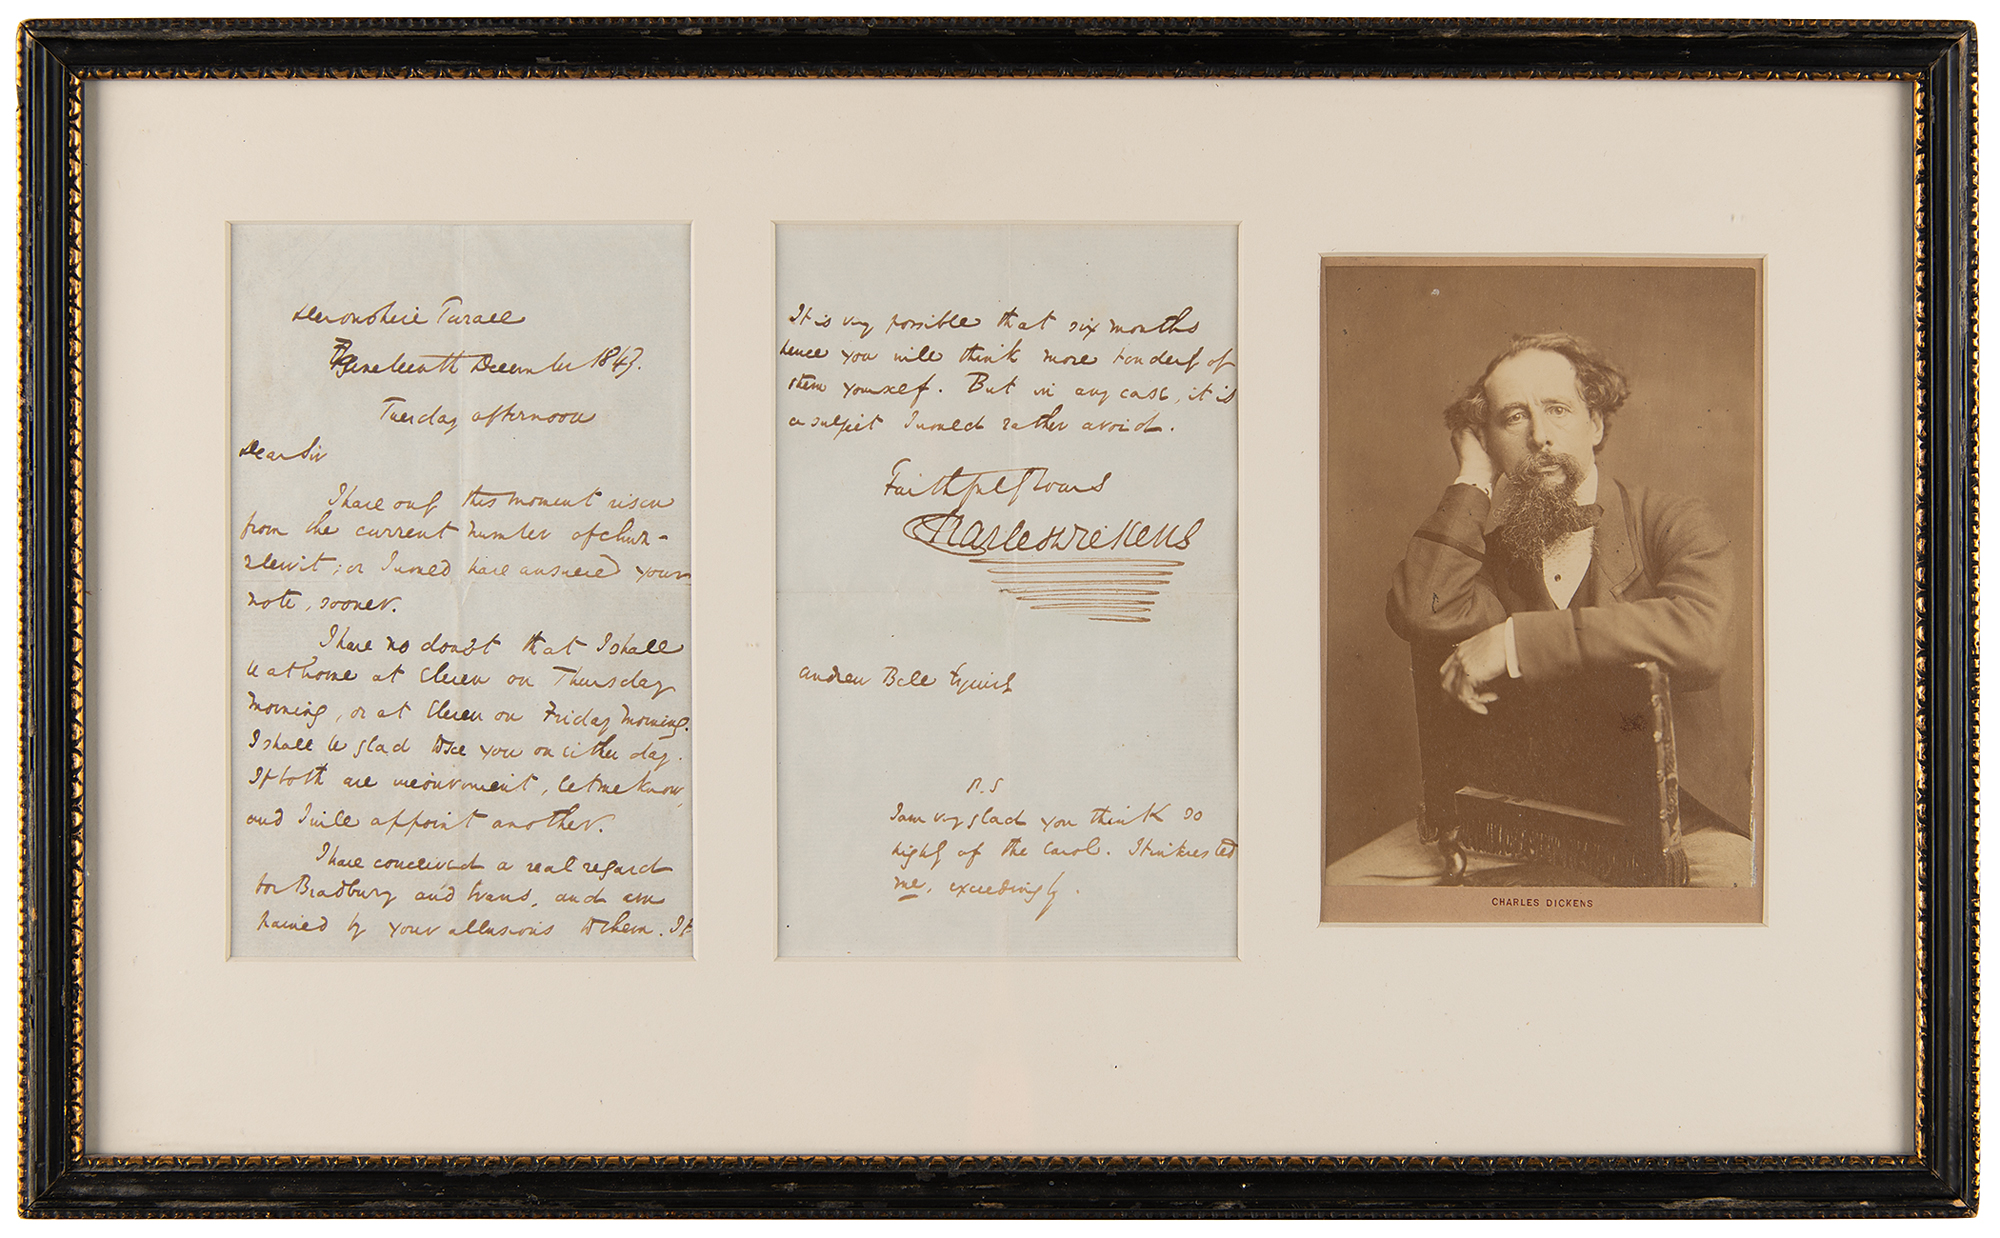 Devonshire Terrace
Nineteenth December 1843.
Tuesday afternoon
Dear Sir
I have only this moment risen
from the current number of Chuz-
zlewit; or I would have answered your
note, sooner.
I have no doubt that I shall
be at home at Eleven on Thursday
Morning, or at Eleven on Friday Morning.
I shall be glad to see you on either day.
If both are inconvenient, let me know,
and I will appoint another.
I have conceived a real regard
for Bradbury and Evans, and am
pained by your allusions to them. It
It is very possible that six months
hence you will think more tenderly of
them yourself. But in any case, it is
a subject I would rather avoid.
Faithfully Yours
Charles Dickens
Andrew Bell Esquire
P.S
I am very glad you think so
highly of the Carol. It interested
me, exceedingly.
CHARLES DICKENS